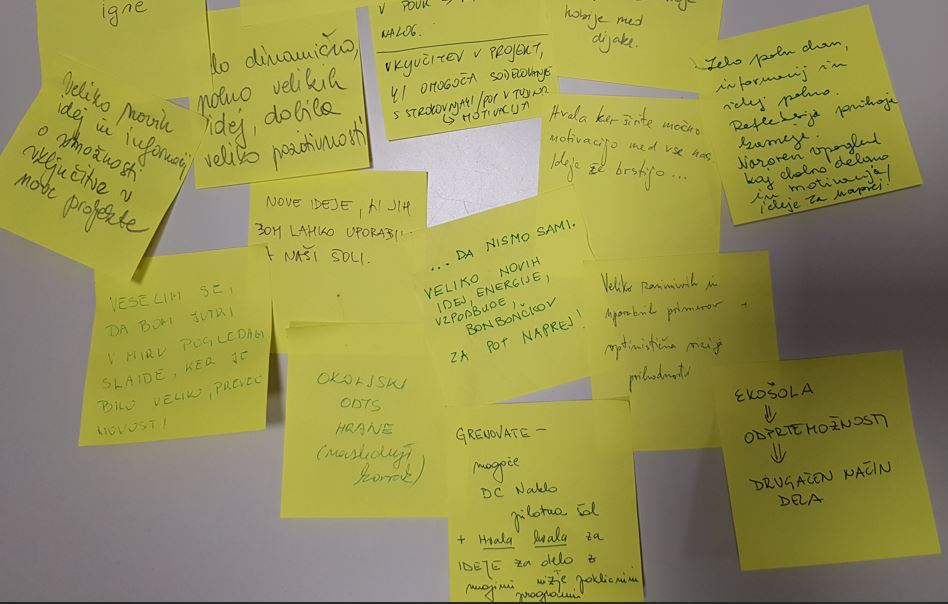 igre
V POUK
NALOG.
VKLJUČITEV V PROJEKT,
KI OMOGOČA SODELOVANJE
S STROKOVNJAKI/POP V TUJINO
↳ MOTIVACIJA
hobije med
dijake.
Zelo poln dan,
informacij in
idej polno.
Refleksija prihaja
kasneje.
Naroren vpogled
kaj delamo
in motivacija/
ideje za naprej!
lo dinamično,
polno velikih
idej, dobila
veliko pozitivnosti
Veliko novih
idej in informacij
o možnosti
vključitve v
nove projekte
Hvala ker širite močno
motivacijo med vse nas
Ideje že brstijo...
NOVE IDEJE, KI JIH
BOM LAHKO UPORABIL
NAŠI ŠOLI.
... DA NISMO SAMI.
VELIKO NOVIH
IDEJ, ENERGIJE,
VZPODBUDE,
BONBONČKOV
ZA POT NAPREJ!
VESELIM SE,
DA BOM JUTRI
V MIRU POGLEDALA
SLAIDE, KER JE
BILO VELIKO, PREVEČ
NOVOSTI
Veliko zanimivih in
uporabnih primerov +
optimistična vizija
prihodnosti
OKOLJSKI
ODTIS
HRANE
(naslednji
korak)
EKOŠOLA
⇓
ODPRTE MOŽNOSTI
⇓
DRUGAČEN NAČIN
DELA
GRENOVATE –
mogoče
DC Naklo
pilotna šol
+ Hvala hvala za
IDEJE za delo z
mojimi nižje poklicnimi
programi